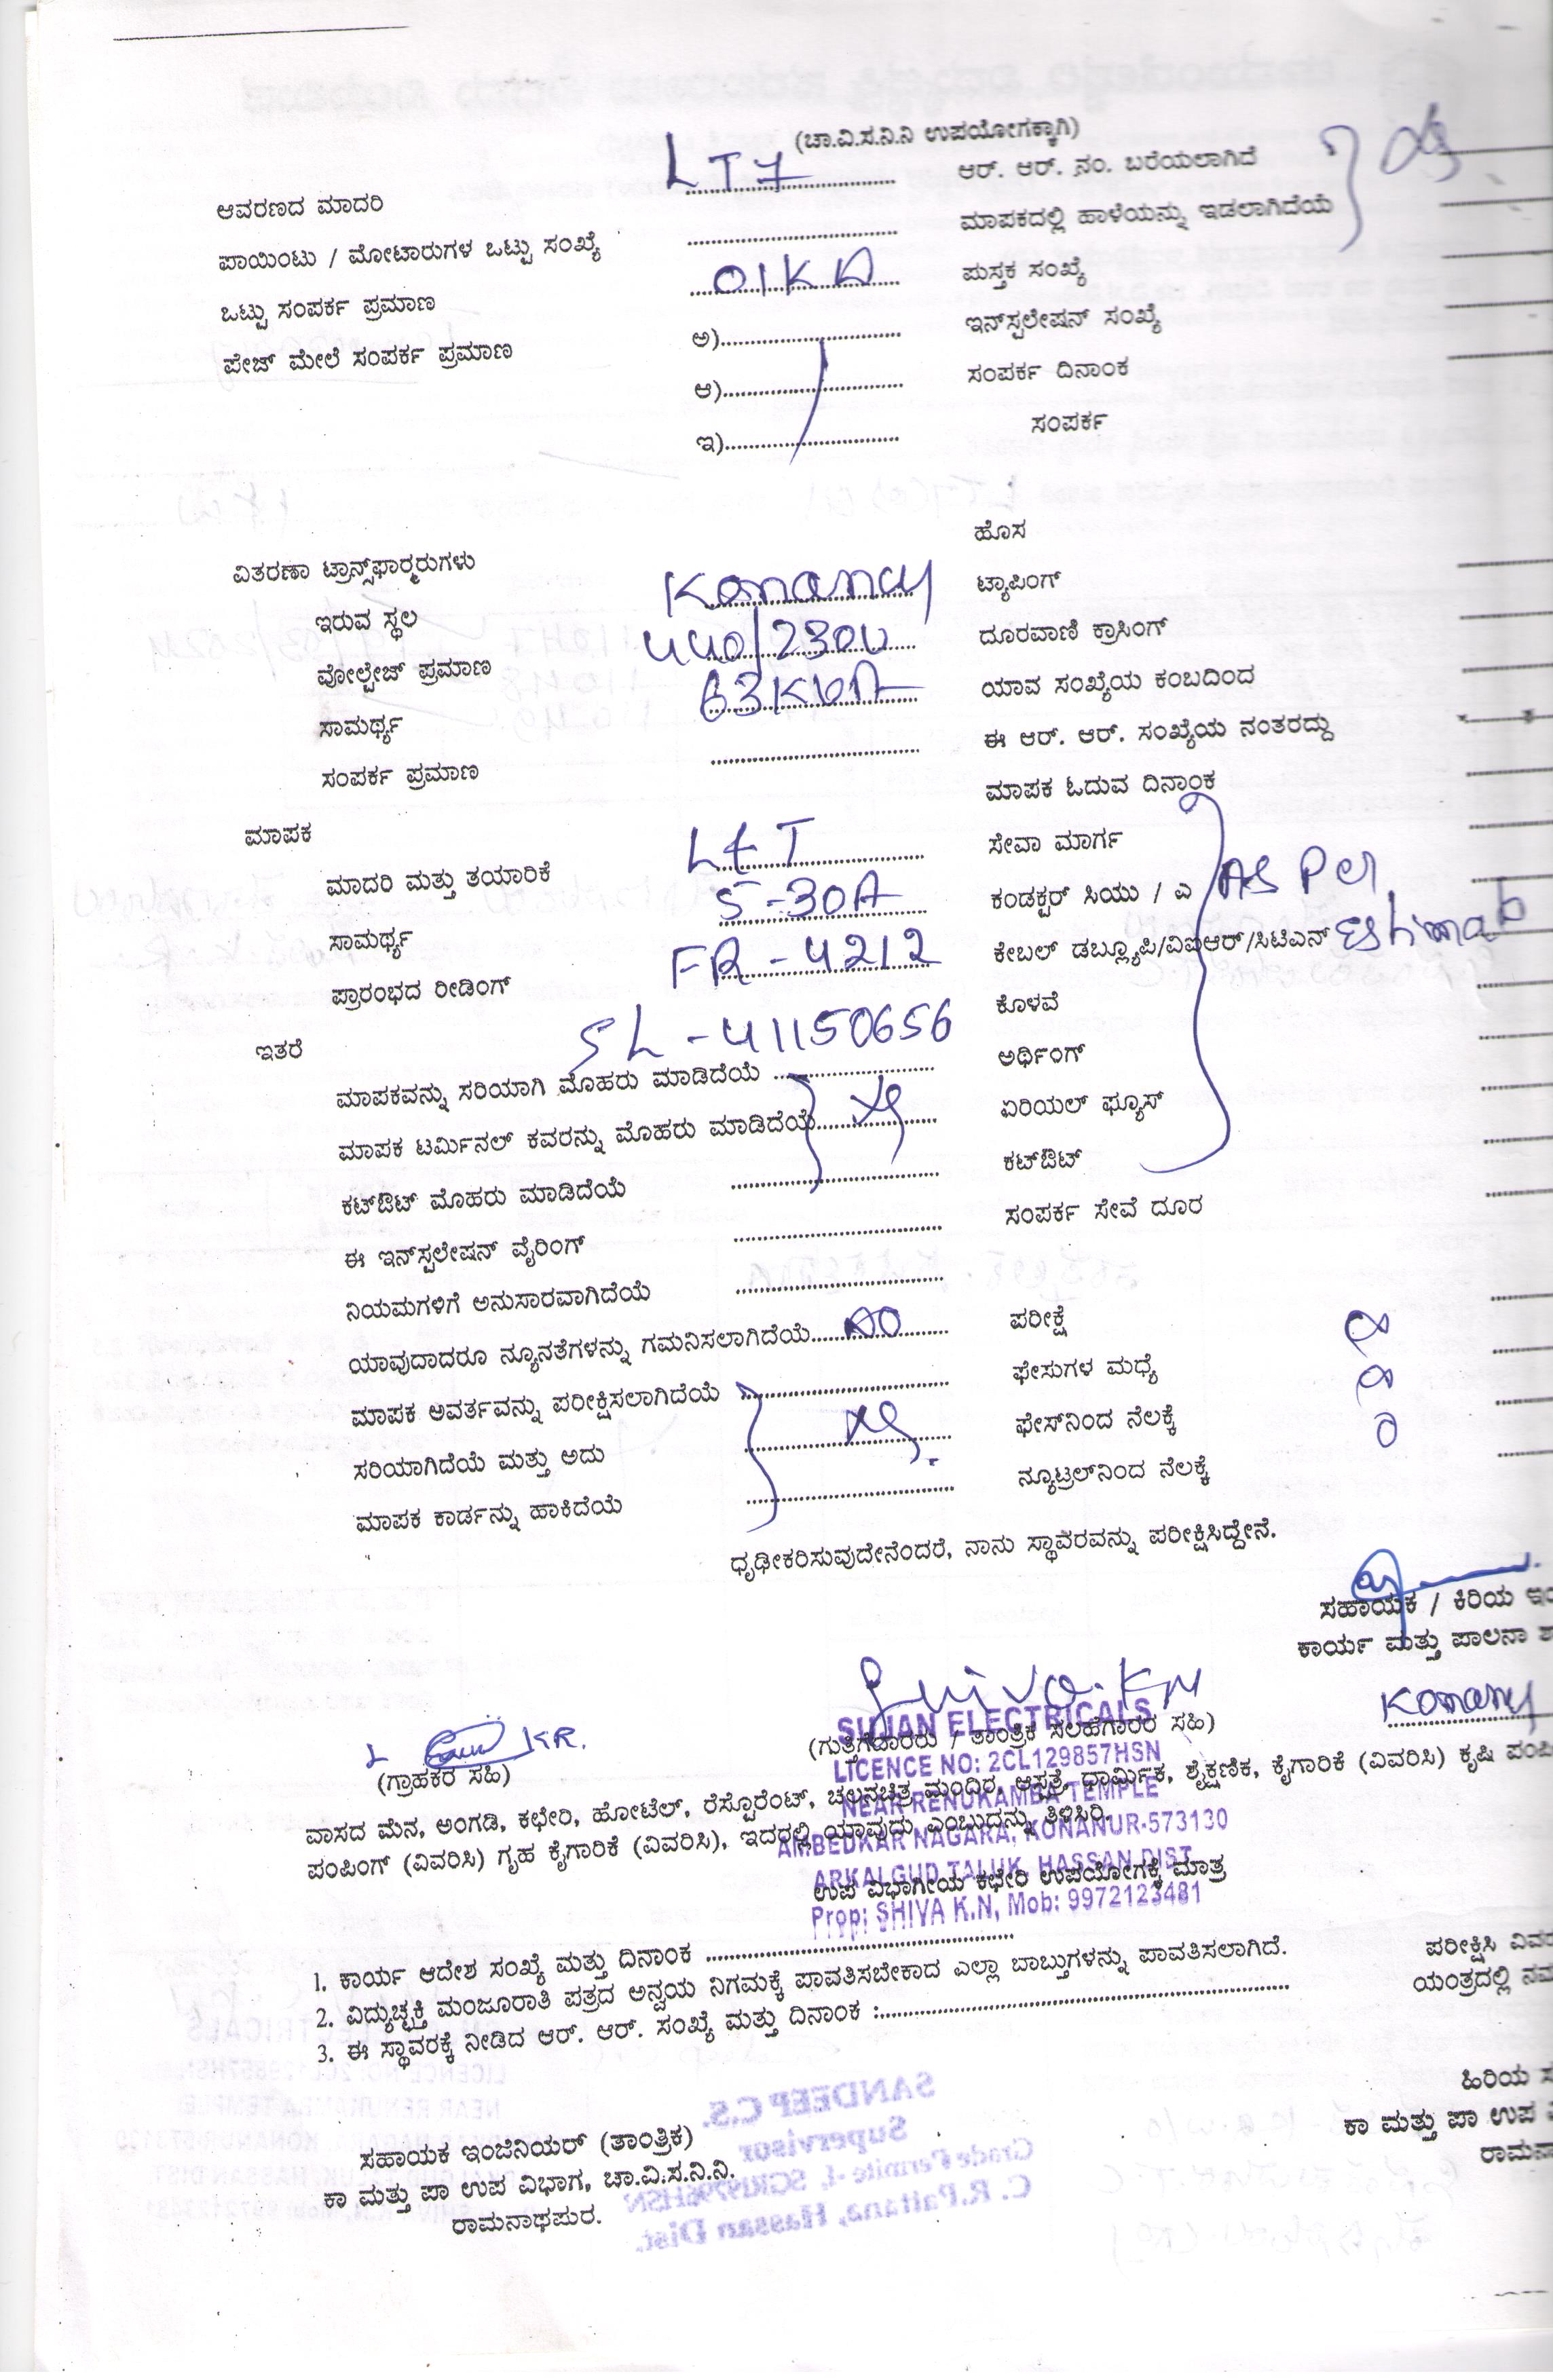 (ಚಾ.ವಿ.ಸ.ನಿ.ನಿ ಉಪಯೋಗಕ್ಕಾಗಿ)
ಆವರಣದ ಮಾದರಿ LT7 ಆರ್. ಆರ್. ನಂ. ಬರೆಯಲಾಗಿದೆ
ಪಾಯಿಂಟು / ಮೋಟಾರುಗಳ ಒಟ್ಟು ಸಂಖ್ಯೆ ಮಾಪಕದಲ್ಲಿ ಹಾಳೆಯನ್ನು ಇಡಲಾಗಿದೆಯೆ
ಒಟ್ಟು ಸಂಪರ್ಕ ಪ್ರಮಾಣ 01KW ಪುಸ್ತಕ ಸಂಖ್ಯೆ
ಪೇಜ್ ಮೇಲೆ ಸಂಪರ್ಕ ಪ್ರಮಾಣ ಅ) ಇನ್‌ಸ್ಟಲೇಷನ್ ಸಂಖ್ಯೆ
ಆ) ಸಂಪರ್ಕ ದಿನಾಂಕ
ಇ) ಸಂಪರ್ಕ
ಹೊಸ
ವಿತರಣಾ ಟ್ರಾನ್ಸ್‌ಫಾರ್‍ಮರುಗಳು ಟ್ಯಾಪಿಂಗ್
ಇರುವ ಸ್ಥಲ Konanoy ದೂರವಾಣಿ ಕ್ರಾಸಿಂಗ್
ವೋಲ್ಟೇಜ್ ಪ್ರಮಾಣ 440/230V ಯಾವ ಸಂಖ್ಯೆಯ ಕಂಬದಿಂದ
ಸಾಮರ್ಥ್ಯ 63KVA ಈ ಆರ್. ಆರ್. ಸಂಖ್ಯೆಯ ನಂತರದ್ದು
ಸಂಪರ್ಕ ಪ್ರಮಾಣ ಮಾಪಕ ಓದುವ ದಿನಾಂಕ
ಮಾಪಕ ಸೇವಾ ಮಾರ್ಗ
ಮಾದರಿ ಮತ್ತು ತಯಾರಿಕೆ L&T ಕಂಡಕ್ಟರ್ ಸಿಯು / ಎ As Per
ಸಾಮರ್ಥ್ಯ 5-30A ಕೇಬಲ್ ಡಬ್ಲ್ಯೂಪಿ/ವಿಐಆರ್/ಸಿಟಿಎನ್ Estimat
ಪ್ರಾರಂಭದ ರೀಡಿಂಗ್ FR-4212 ಕೊಳವೆ
ಇತರೆ SL-41150656 ಅರ್ಥಿಂಗ್
ಮಾಪಕವನ್ನು ಸರಿಯಾಗಿ ಮೊಹರು ಮಾಡಿದೆಯೆ ಏರಿಯಲ್ ಫ್ಯೂಸ್
ಮಾಪಕ ಟರ್ಮಿನಲ್ ಕವರನ್ನು ಮೊಹರು ಮಾಡಿದೆಯೆ ಕಟ್‌ಔಟ್
ಕಟ್‌ಔಟ್ ಮೊಹರು ಮಾಡಿದೆಯೆ ಸಂಪರ್ಕ ಸೇವೆ ದೂರ
ಈ ಇನ್‌ಸ್ಟಲೇಷನ್ ವೈರಿಂಗ್
ನಿಯಮಗಳಿಗೆ ಅನುಸಾರವಾಗಿದೆಯೆ ಪರೀಕ್ಷೆ
ಯಾವುದಾದರೂ ನ್ಯೂನತೆಗಳನ್ನು ಗಮನಿಸಲಾಗಿದೆಯೆ NO ಫೇಸುಗಳ ಮಧ್ಯೆ
ಮಾಪಕ ಅವರ್ತವನ್ನು ಪರೀಕ್ಷಿಸಲಾಗಿದೆಯೆ ಫೇಸ್‌ನಿಂದ ನೆಲಕ್ಕೆ
ಸರಿಯಾಗಿದೆಯೆ ಮತ್ತು ಅದು ನ್ಯೂಟ್ರಲ್‌ನಿಂದ ನೆಲಕ್ಕೆ
ಮಾಪಕ ಕಾರ್ಡನ್ನು ಹಾಕಿದೆಯೆ
ಧೃಢೀಕರಿಸುವುದೇನೆಂದರೆ, ನಾನು ಸ್ಥಾವರವನ್ನು ಪರೀಕ್ಷಿಸಿದ್ದೇನೆ.
ಸಹಾಯಕ / ಕಿರಿಯ ಇಂ
ಕಾರ್ಯ ಮತ್ತು ಪಾಲನಾ ಶಾ
Konanoy
Shiva.KN
KR.
SUJAN ELECTRICALS
(ಗುತ್ತಿಗೆದಾರರು / ತಾಂತ್ರಿಕ ಸಲಹೆಗಾರರ ಸಹಿ)
LICENCE NO: 2CL129857HSN
(ಗ್ರಾಹಕರ ಸಹಿ)
ವಾಸದ ಮೆನ, ಅಂಗಡಿ, ಕಛೇರಿ, ಹೋಟೆಲ್, ರೆಸ್ಟೊರೆಂಟ್, ಚಲನಚಿತ್ರ ಮಂದಿರ, ಆಸ್ಪತ್ರೆ, ಧಾರ್ಮಿಕ, ಶೈಕ್ಷಣಿಕ, ಕೈಗಾರಿಕೆ (ವಿವರಿಸಿ) ಕೃಷಿ ಪಂಪಿ
NEAR RENUKAMBA TEMPLE
ಪಂಪಿಂಗ್ (ವಿವರಿಸಿ) ಗೃಹ ಕೈಗಾರಿಕೆ (ವಿವರಿಸಿ), ಇದರಲ್ಲಿ ಯಾವುದು ಎಂಬುದನ್ನು ತಿಳಿಸಿರಿ.
AMBEDKAR NAGARA, KONANUR-573130
ARKALGUD TALUK, HASSAN DIST
ಉಪ ವಿಭಾಗೀಯ ಕಛೇರಿ ಉಪಯೋಗಕ್ಕೆ ಮಾತ್ರ
Prop: SHIVA K.N, Mob: 9972123481
1. ಕಾರ್ಯ ಆದೇಶ ಸಂಖ್ಯೆ ಮತ್ತು ದಿನಾಂಕ
2. ವಿದ್ಯುಚ್ಛಕ್ತಿ ಮಂಜೂರಾತಿ ಪತ್ರದ ಅನ್ವಯ ನಿಗಮಕ್ಕೆ ಪಾವತಿಸಬೇಕಾದ ಎಲ್ಲಾ ಬಾಬ್ತುಗಳನ್ನು ಪಾವತಿಸಲಾಗಿದೆ. ಪರೀಕ್ಷಿಸಿ ವಿವರ
3. ಈ ಸ್ಥಾವರಕ್ಕೆ ನೀಡಿದ ಆರ್. ಆರ್. ಸಂಖ್ಯೆ ಮತ್ತು ದಿನಾಂಕ : ಯಂತ್ರದಲ್ಲಿ ನಮ
ಹಿರಿಯ ಸ
ಸಹಾಯಕ ಇಂಜಿನಿಯರ್ (ತಾಂತ್ರಿಕ) ಕಾ ಮತ್ತು ಪಾ ಉಪ ವಿ
ಕಾ ಮತ್ತು ಪಾ ಉಪ ವಿಭಾಗ, ಚಾ.ವಿ.ಸ.ನಿ.ನಿ. ರಾಮನಾ
ರಾಮನಾಥಪುರ.
SANDEEP C.S.
Supervisor
Grade Permite-I, SCR19796HSN
C.R.Pattana, Hassan Dist.